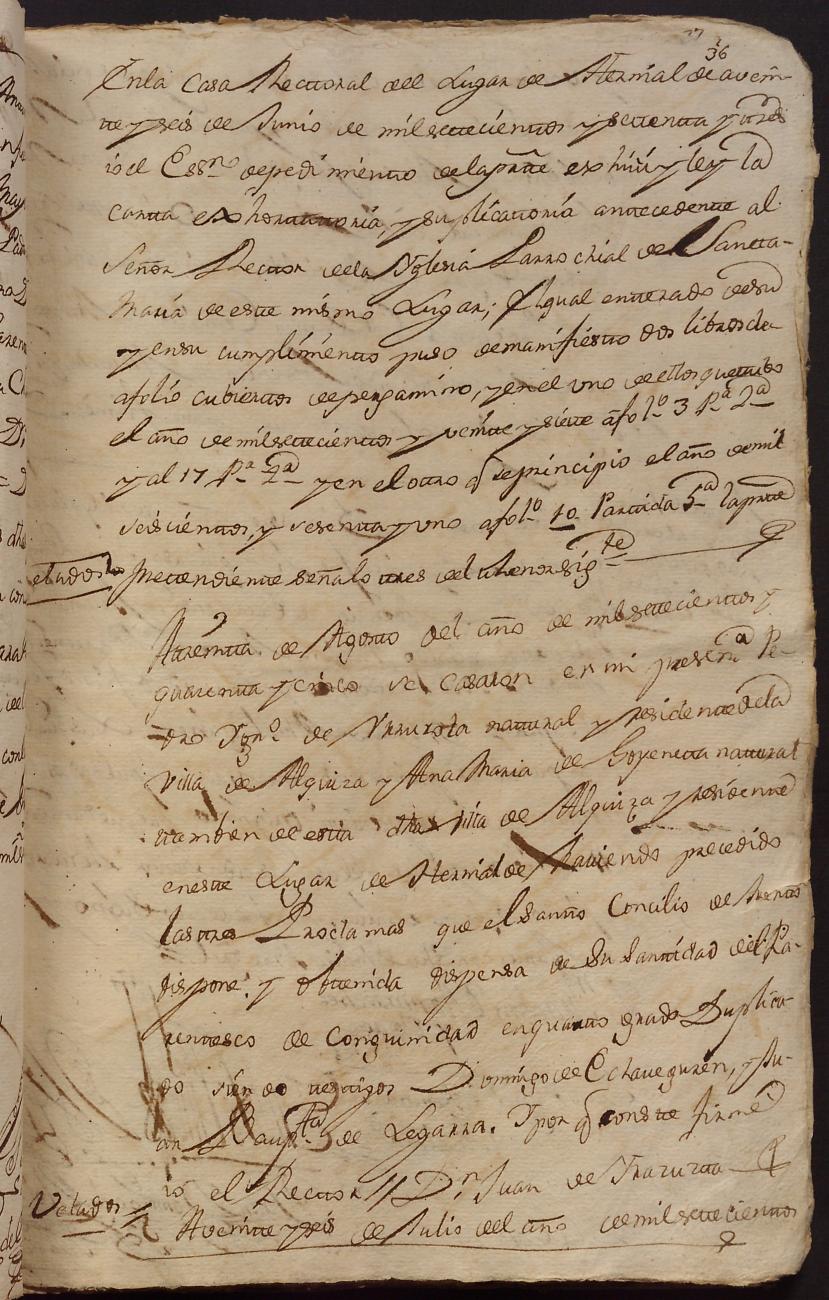 36
Enla Casa Rectoral del Lugar de Hernialde avein-
te y seis de Junio de mil settecientos y settenta y tres
io el Essno depedimiento dela prte exhiui y ley la
cartta exhorttattoria, y suplicattoria antecedente al
Señor Rector dela Yglesia Parrochial de Sancta
Maria de este mismo Lugar; Elqual entterado desu
y ensu cumplimiento puso demanifiesto dos libros de
afolio cubiertos de pergamino, y en el uno de ellos que
el año demilsettecientos y veinte y siete afolo 3 Pa 2a
y al 17 Pa 2a y en el otro q de principio el año demil
seiscientos, y sesenta y uno afolo 10 Partida 5a la prte
prettendiente señalo tres del thenor sigte
Atreinta de Agosto del año de mil settecientos y
quarenta y cinco se casaron en mi presena Pe-
dro Ygno de Yrurota natural y residente dela
Villa de Alquiza y Ana Maria de Goyeneta natural
tambien de esta dha Villa de Alquiza y residente
eneste Lugar de Hernialde Haviendo precedido
las tres Proclamas que el santto Concilio de Trento
dispone, y obtenida dispensa de Su Santidad del Pa-
rentesco de Conguinidad enquarto grado Duplica-
do siendo testigos Domingo de Echaveguren, y Ju-
an Bauptta de Legarra. Y por q conste firmé
io el Rector // Dn Juan de Yrazuzta
Velados
Aveinte y seis de Julio del año de mil settecientos